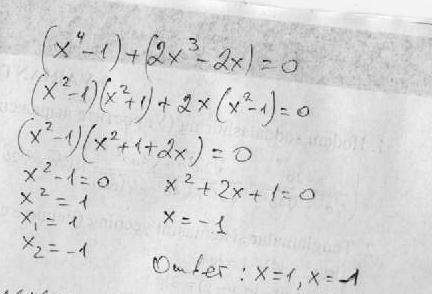 (x⁴-1)+(2x³-2x)=0
(x²-1)(x²+1)+2x(x²-1)=0
(x²-1)(x²+1+2x)=0
x²-1=0 x²+2x+1=0
x²=1
x₁=1 x=-1
x₂=-1
Ответ: x=1, x=-1